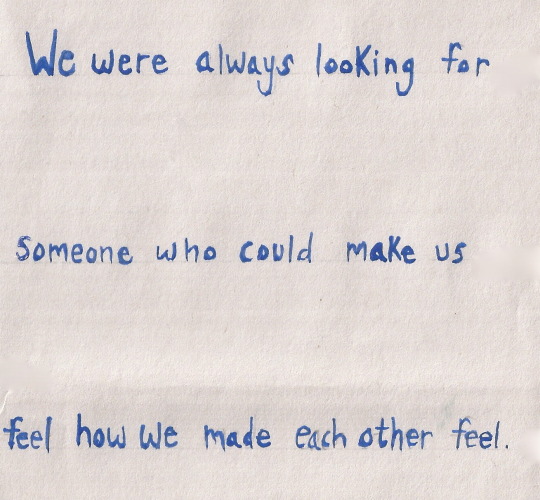 We were always looking for
someone who could make us
feel how we made each other feel.